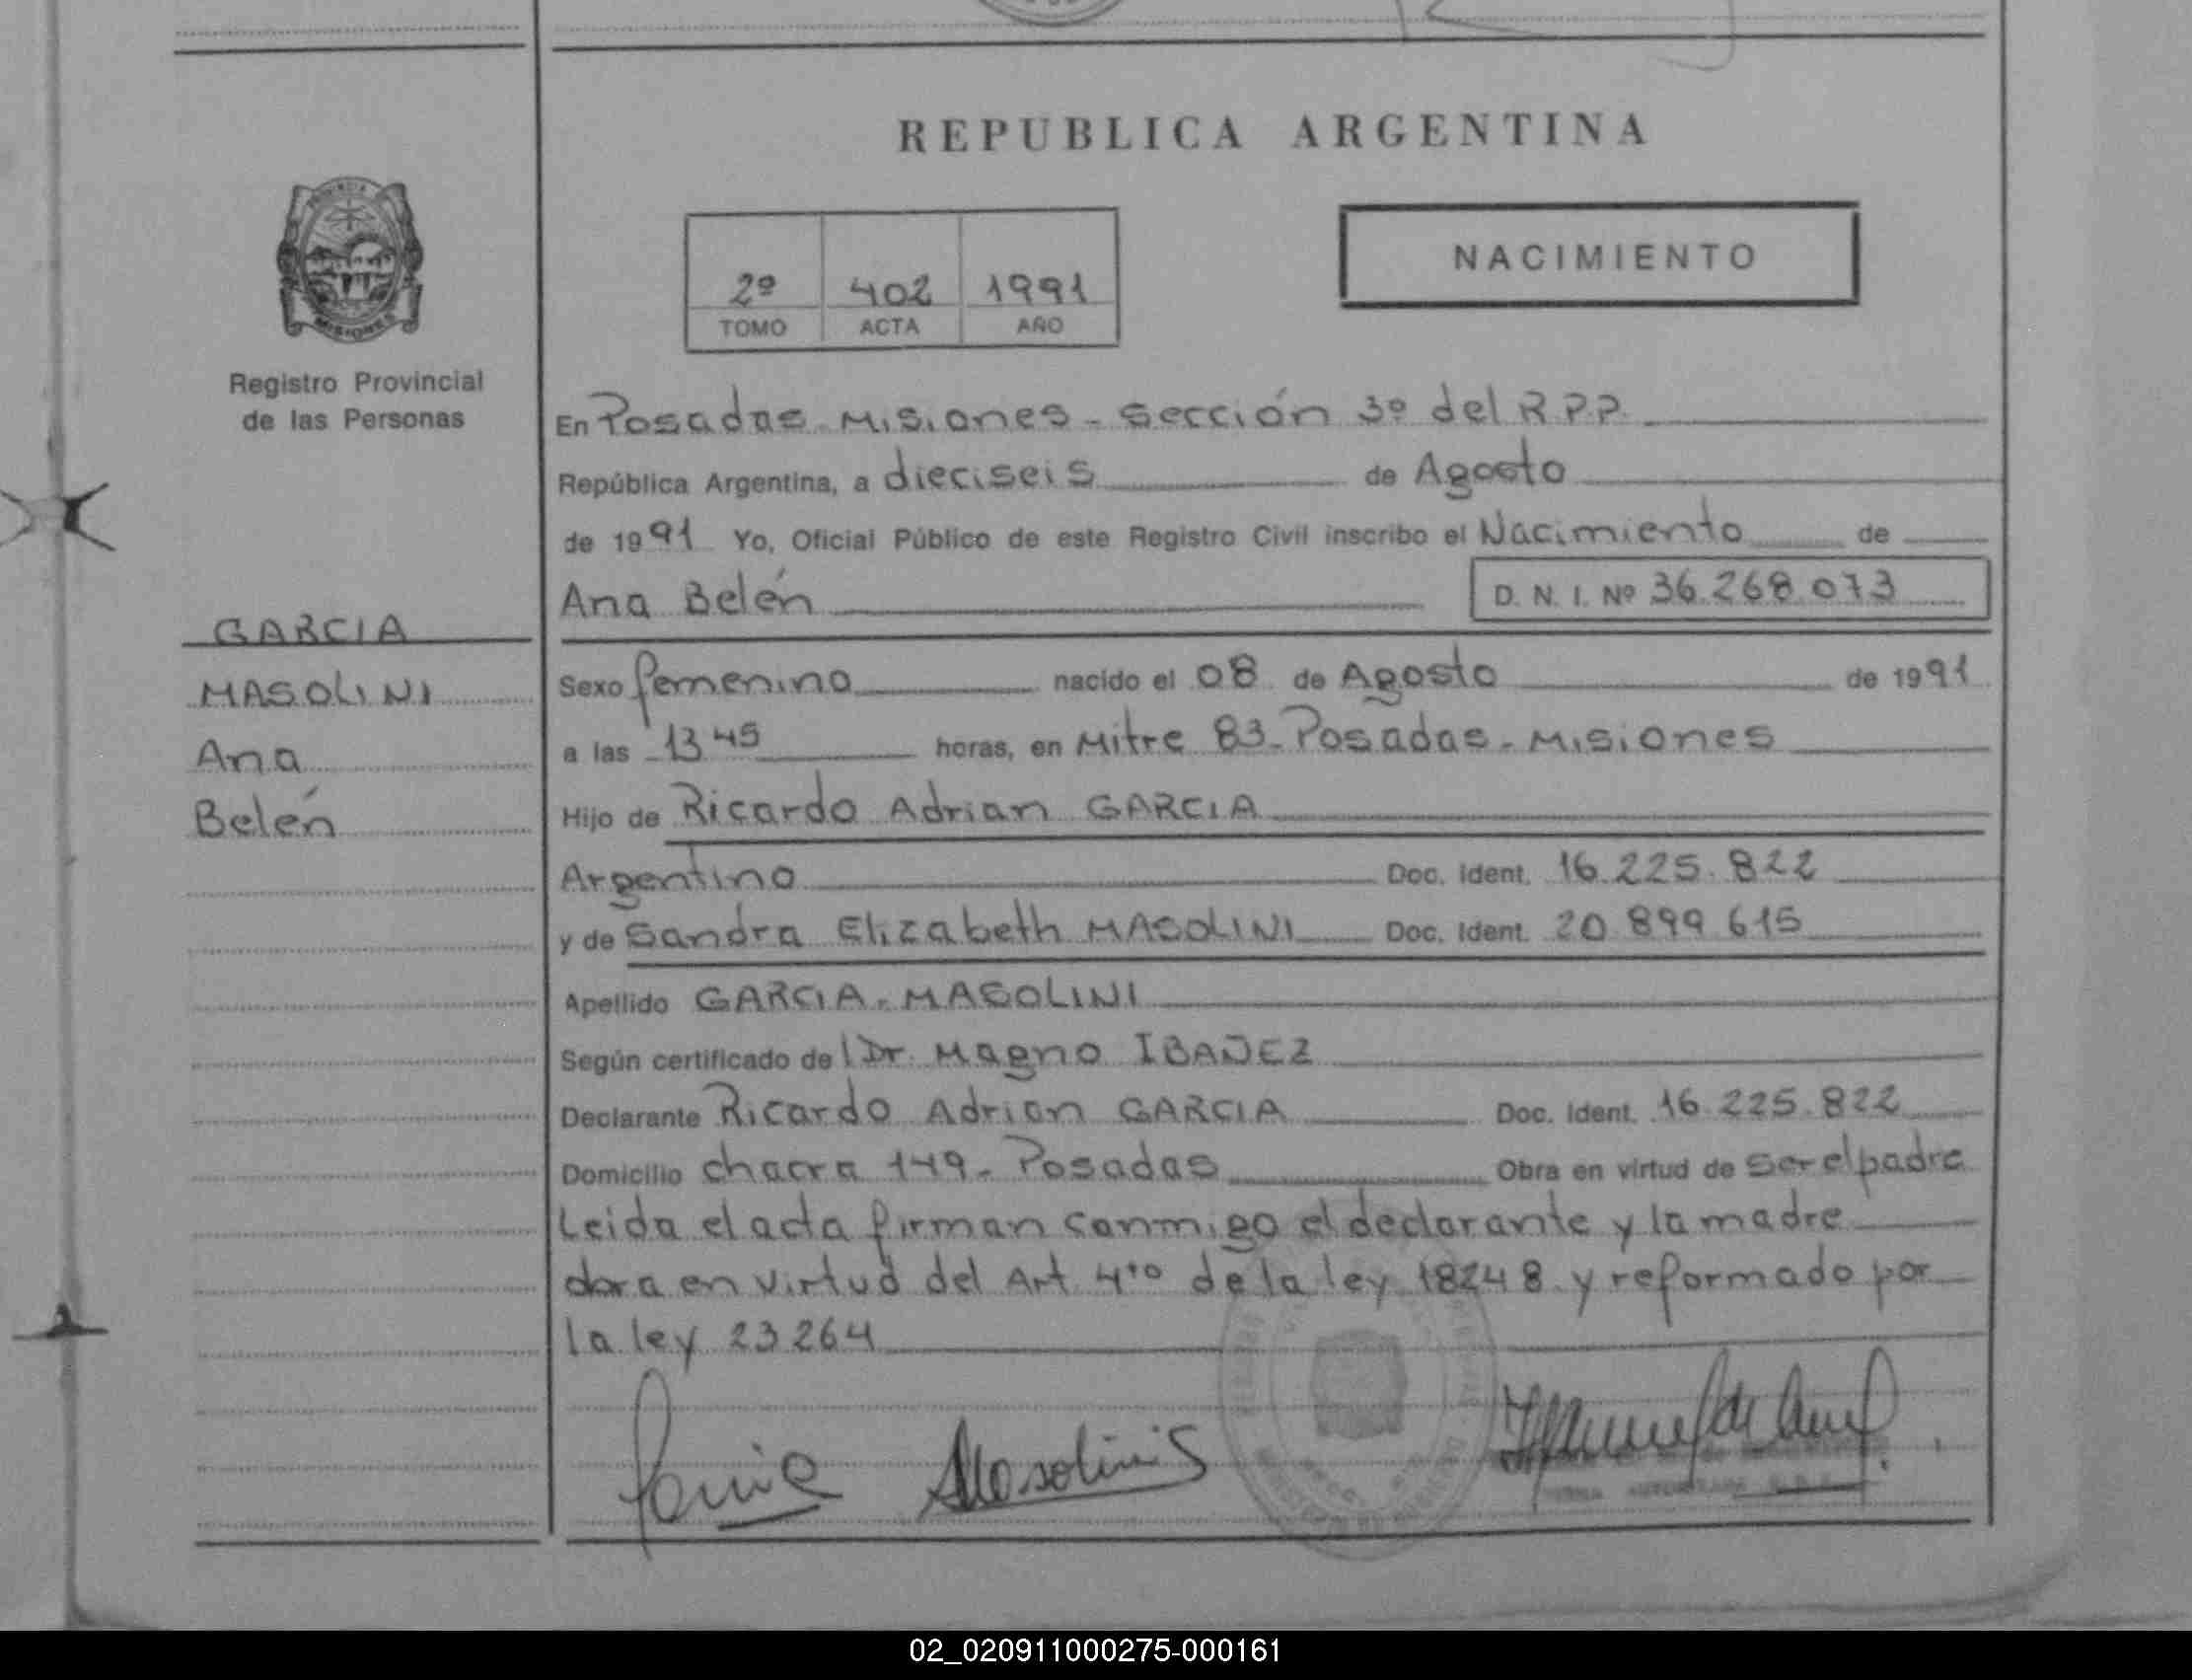 REPUBLICA ARGENTINA
PROVINCIA
MISIONES
Registro Provincial
de las Personas
NACIMIENTO
2º 402 1991
TOMO ACTA AÑO
GARCIA
MASOLINI
Ana
Belén
En Posadas - Misiones - Sección 3º del R.P.P.
República Argentina, a dieciseis de Agosto
de 1991 Yo, Oficial Público de este Registro Civil inscribo el Nacimiento de
Ana Belén D. N. I. Nº 36.268.073
Sexo femenino nacido el 08 de Agosto de 1991
a las 13 45 horas, en Mitre 83 - Posadas - Misiones
Hijo de Ricardo Adrian GARCIA
Argentino Doc. Ident. 16.225.822
y de Sandra Elizabeth MASOLINI Doc. Ident. 20 899 615
Apellido GARCIA - MASOLINI
Según certificado de l Dr. Magno IBAÑEZ
Declarante Ricardo Adrian GARCIA Doc. Ident. 16.225.822
Domicilio chacra 149 - Posadas Obra en virtud de ser el padre
Leida el acta firman conmigo el declarante y la madre
obra en virtud del Art 4to de la ley 18248 y reformado por
la ley 23264
Masolini S
02_020911000275-000161